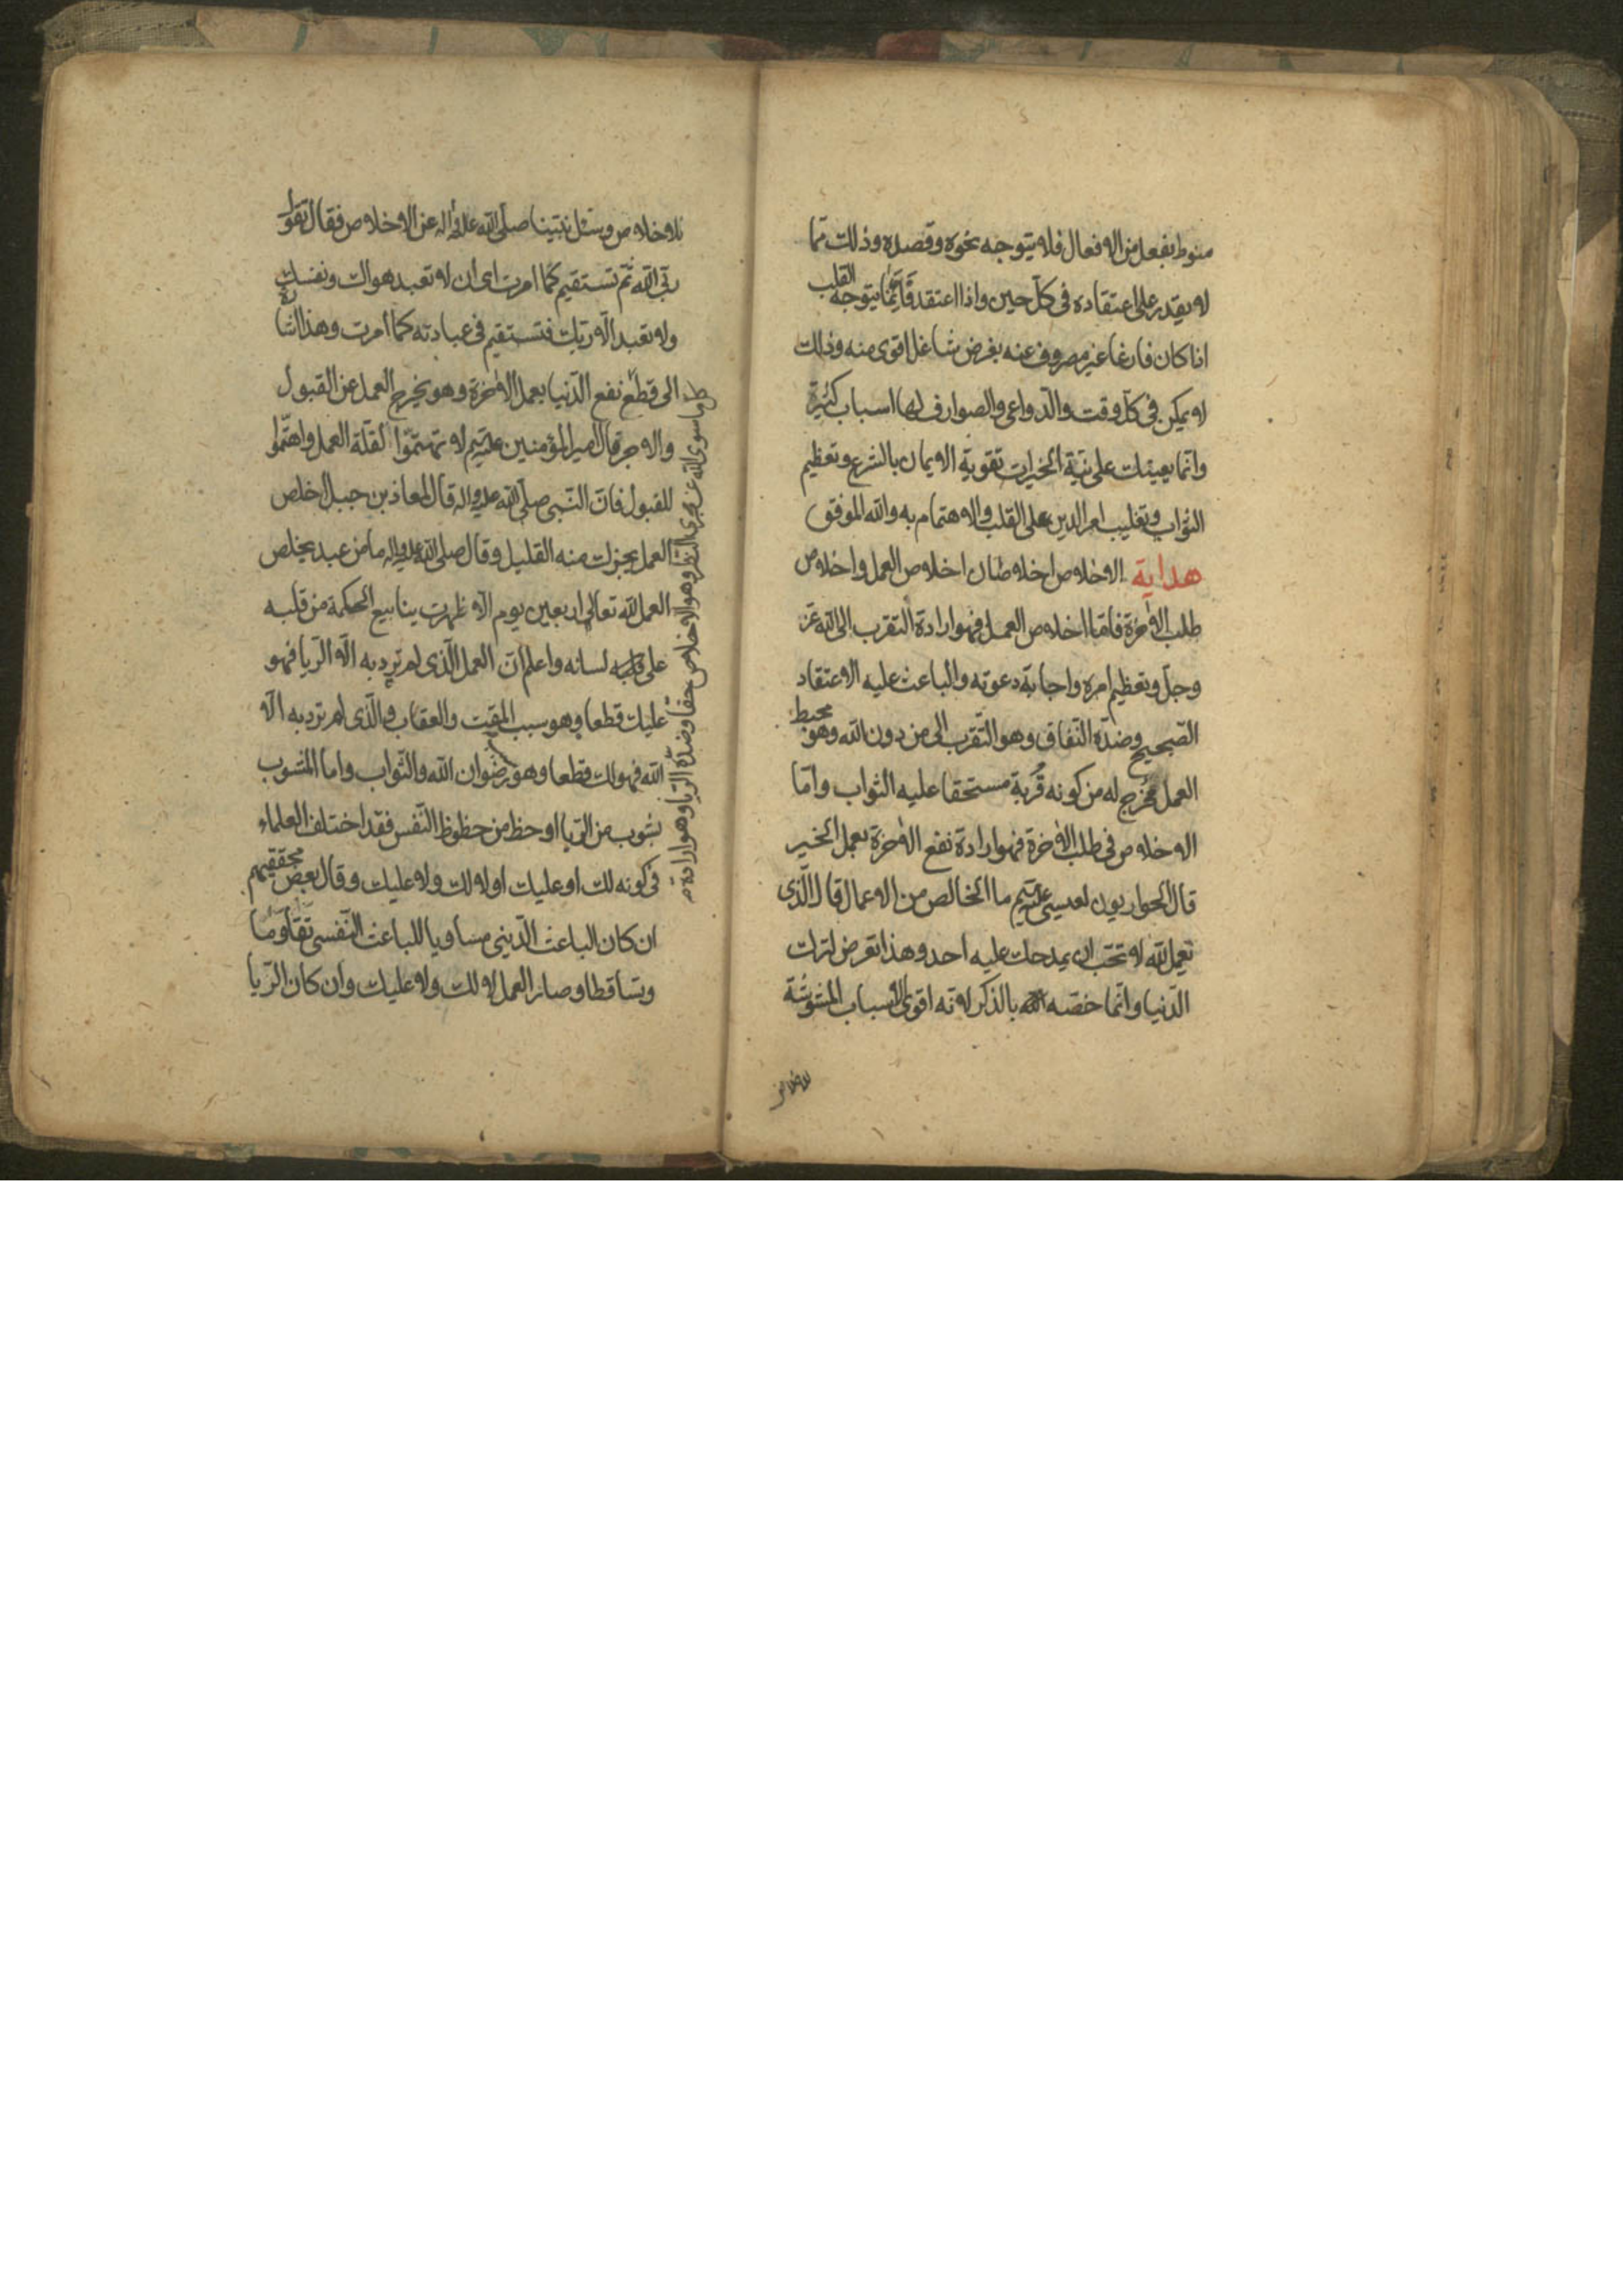 منوط بفعل من الافعال فلا يتوجه نحوه وقصده وذلك ممّا
لا يقدر على اعتقاده فى كل حين واذا اعتقد فانّما يتوجه القلب
اذا كان فارغا غير مصروف عنه بغرض شاغل اقوى منه وذلك
لا يمكن فى كل وقت والدّواعى والصوارف لها اسباب كثيرة
وانّما يعينك على نيّة الخيرات تقوية الايمان بالشرع وتعظيم
الثواب وتغليب امر الدين على القلب والاهتمام به والله الموفق
هداية الاخلاص اخلاصان اخلاص العمل واخلاص
طلب الاخرة فامّا اخلاص العمل فهو ارادة التقرب الى الله عزّ
وجلّ وتعظيم امره واجابة دعوته والباعث عليه الاعتقاد
الصّحيح وضدّه النّفاق وهو التّقرب الى من دون الله وهو محبط
العمل مخرج له من كونه قربة مستحقا عليه الثواب وامّا
الاخلاص فى طلب الاخرة فهو ارادة نفع الاخرة بعمل الخير
قال الحواريون لعيسى عليه السلم ما الخالص من الاعمال قال الّذى
تعمل لله لا تحب ان يمدحك عليه احد وهذا تعرض لترك
الدّنيا وانّما خصّه بالذكر لانه اقوى الاسباب المشوشة
للاخلاص
للاخلاص وسئل نبيّنا صلّى الله عليه واله عن الاخلاص فقال تقول
ربّى الله ثم تستقيم كما امرت اى ان لا تعبد هواك ونفسك
ولا تعبد الّا ربّك فتستقيم فى عبادته كما امرت وهذا اشارة
الى قطع نفع الدّنيا بعمل الاخرة وهو يخرج العمل عن القبول
والاجر قال امير المؤمنين عليه السلم لا تهتمّوا لقلة العمل واهتمّوا
للقبول فانّ النّبى صلّى الله عليه واله قال لمعاذ بن جبل اخلص
العمل يجزك منه القليل وقال صلى الله عليه واله ما من عبد يخلص
العمل لله تعالى اربعين يوم الّا ظهرت ينابيع الحكمة من قلبه
على لسانه واعلم انّ العمل الّذى لم ترد به الّا الرّيا فهو
عليك قطعا وهو سبب المقت والعقاب والّذى لم ترد به الّا
الله فهو لك قطعا وهو رضوان الله والثّواب واما المشوب
بشوب من الرّيا او حظ من حظوظ النّفس فقد اختلف العلماء
فى كونه لك او عليك او لا لك ولا عليك وقال بعض محققيهم
ان كان الباعث الدّينى مساويا للباعث النّفسى تقاوما
وتساقطا وصار العمل لا لك ولا عليك وان كان الرّيا
ما سوى الله عن مجرى النظر وهو الاخلاص حقا وضدّه الرّيا وهو ارادة